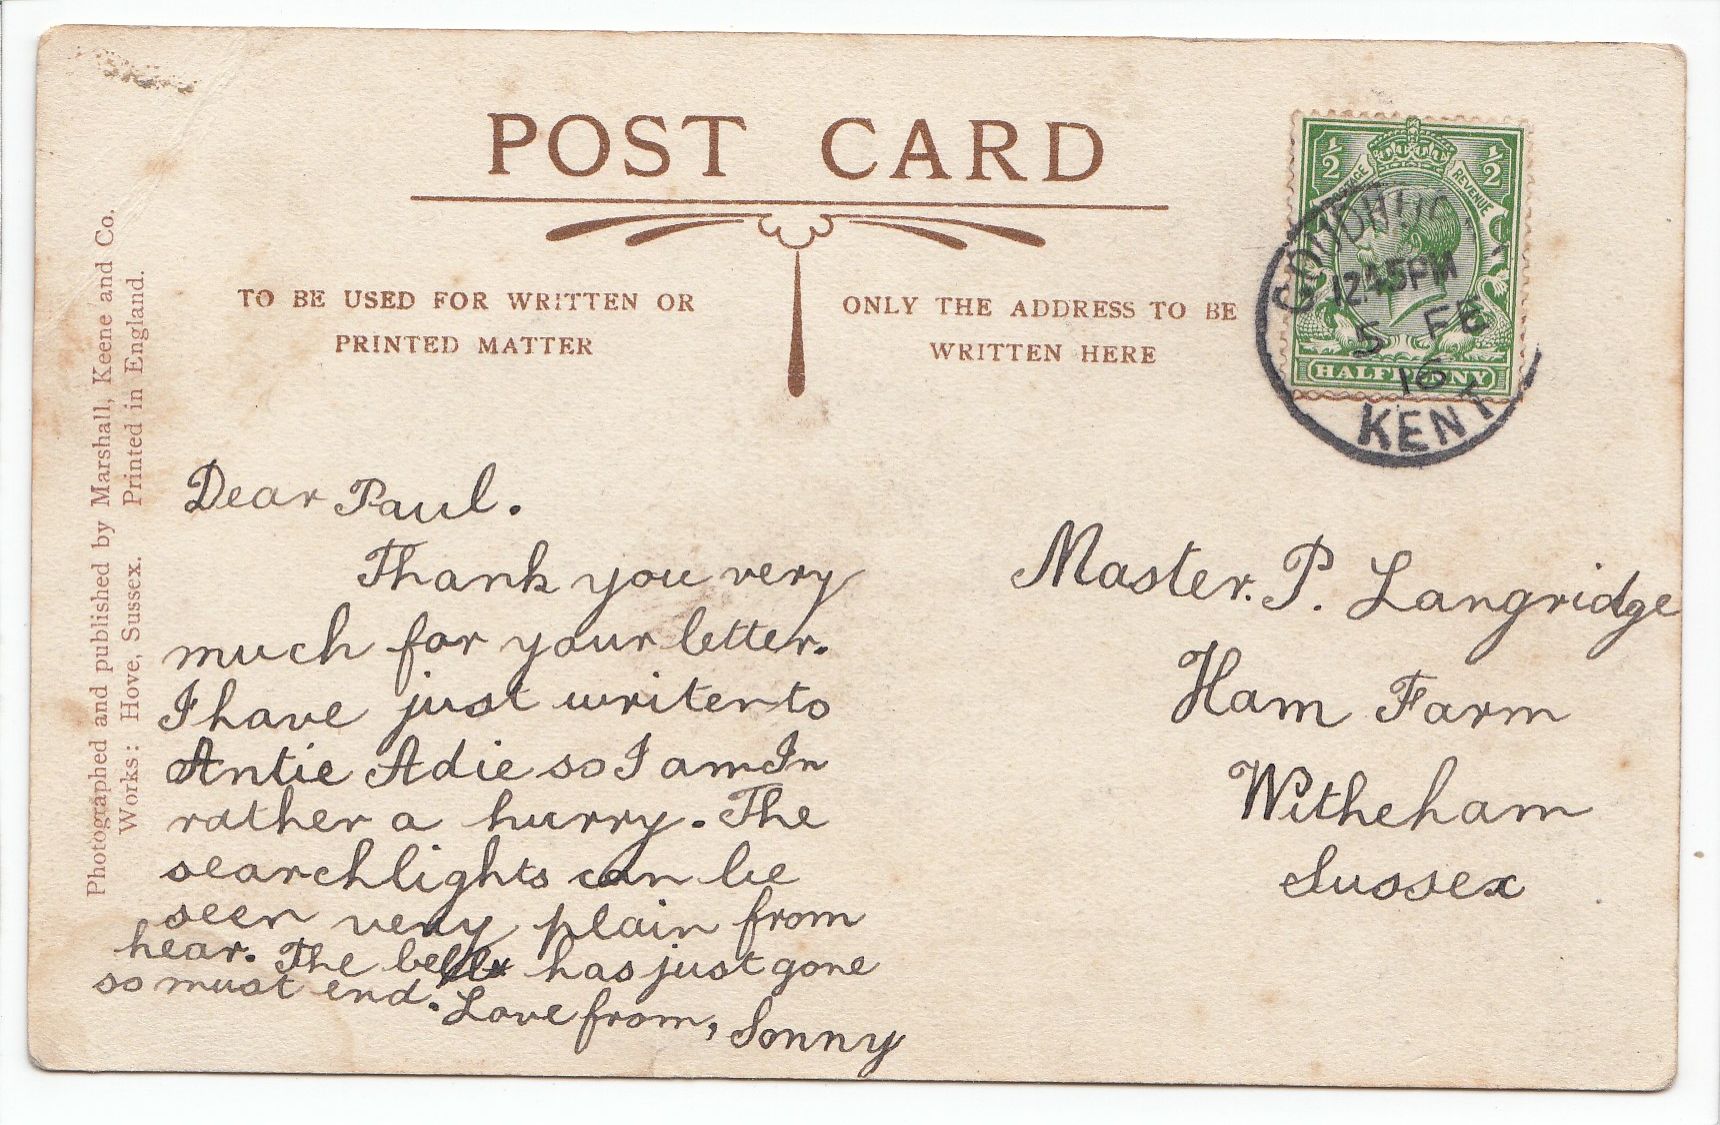 POST CARD
TO BE USED FOR WRITTEN OR
PRINTED MATTER
ONLY THE ADDRESS TO BE
WRITTEN HERE
½ ½
POSTAGE REVENUE
HALFPENNY
GOUDHU
12.45PM
5 FE
16
KENT
Photographed and published by Marshall, Keene and Co.
Works: Hove, Sussex. Printed in England.
Dear Paul.
Thank you very
much for your letter.
I have just writen to
Antie Adie so I am In
rather a hurry. The
searchlights can be
seen very plain from
hear. The bell has just gone
so must end. Love from, Sonny
Master. P. Langridge
Ham Farm
Witheham
Sussex